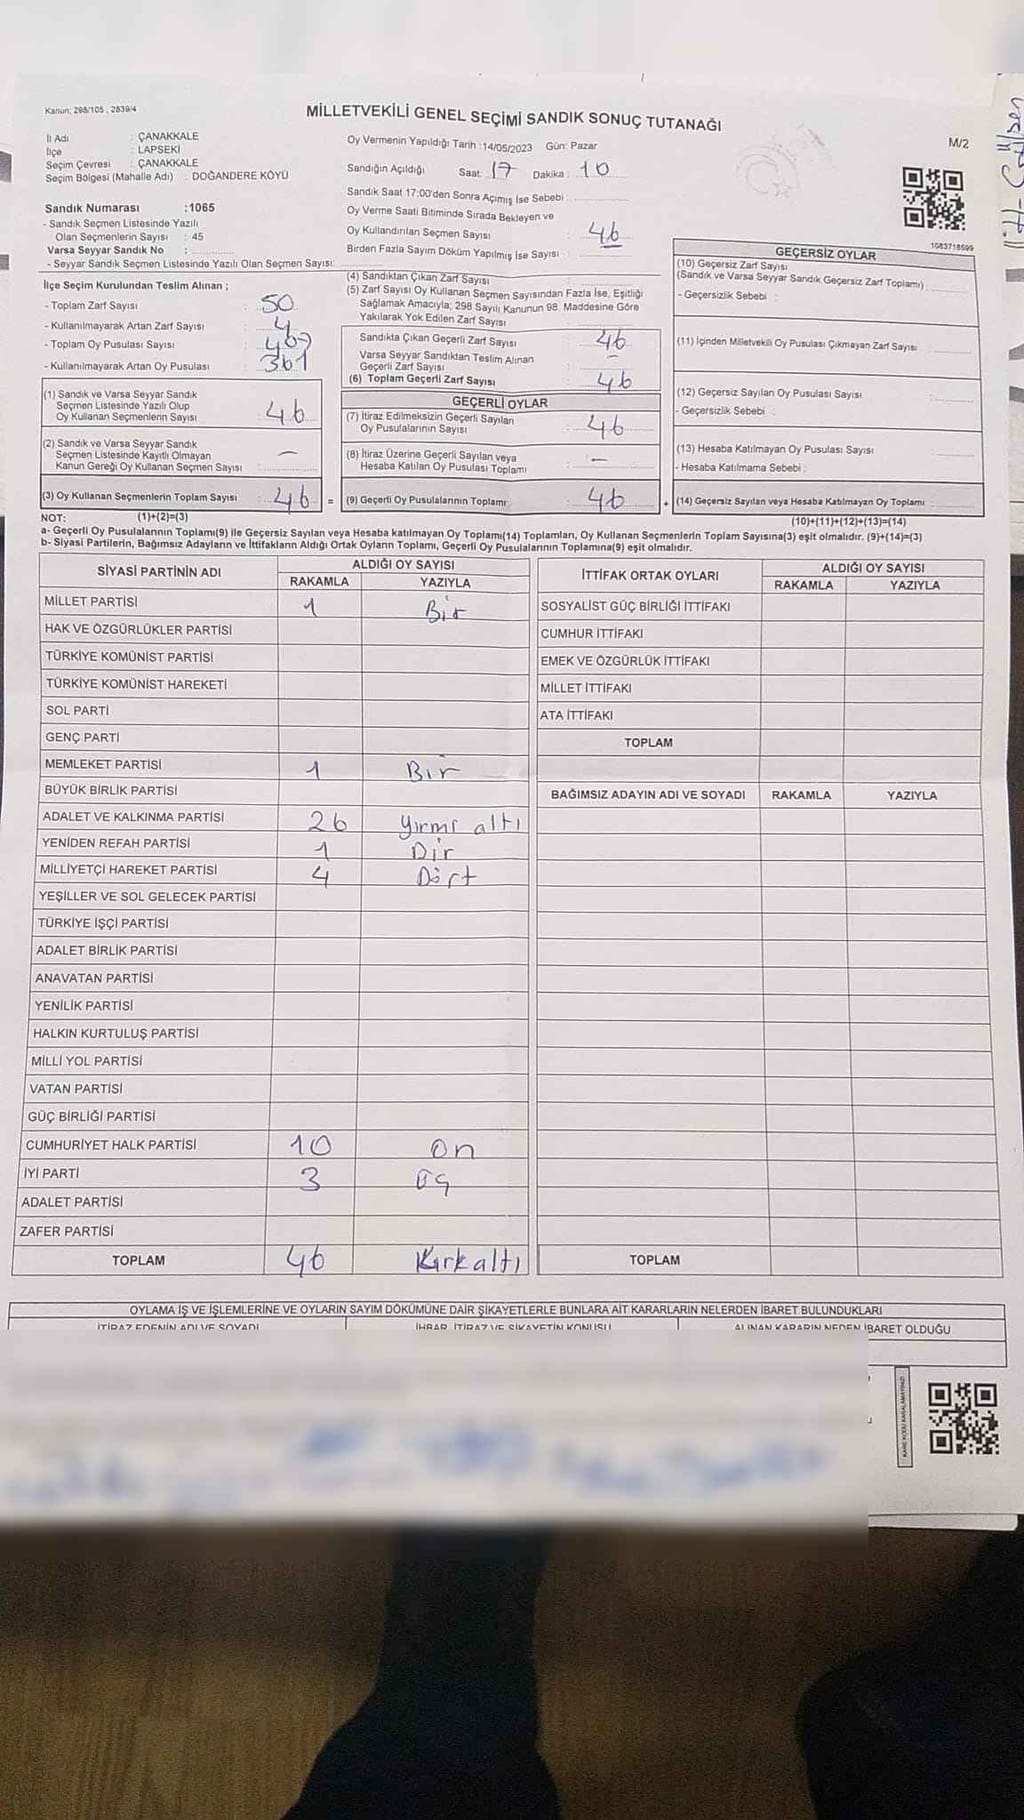 Kanun; 298/105 , 2839/4
MİLLETVEKİLİ GENEL SEÇİMİ SANDIK SONUÇ TUTANAĞI
M/2
İl Adı : ÇANAKKALE
İlçe : LAPSEKİ
Seçim Çevresi : ÇANAKKALE
Seçim Bölgesi (Mahalle Adı) : DOĞANDERE KÖYÜ
Sandık Numarası :1065
- Sandık Seçmen Listesinde Yazılı
Olan Seçmenlerin Sayısı : 45
Varsa Seyyar Sandık No :
- Seyyar Sandık Seçmen Listesinde Yazılı Olan Seçmen Sayısı:
Oy Vermenin Yapıldığı Tarih :14/05/2023 Gün: Pazar
Sandığın Açıldığı Saat: 17 Dakika : 10
Sandık Saat 17:00'den Sonra Açımış İse Sebebi :
Oy Verme Saati Bitiminde Sırada Bekleyen ve
Oy Kullandırılan Seçmen Sayısı : 46
Birden Fazla Sayım Döküm Yapılmış İse Sayısı :
1083718599
İlçe Seçim Kurulundan Teslim Alınan ;
- Toplam Zarf Sayısı : 50
- Kullanılmayarak Artan Zarf Sayısı : 4
- Toplam Oy Pusulası Sayısı :
- Kullanılmayarak Artan Oy Pusulası : 361
(1) Sandık ve Varsa Seyyar Sandık
Seçmen Listesinde Yazılı Olup
Oy Kullanan Seçmenlerin Sayısı : 46
(2) Sandık ve Varsa Seyyar Sandık
Seçmen Listesinde Kayıtlı Olmayan
Kanun Gereği Oy Kullanan Seçmen Sayısı : —
(3) Oy Kullanan Seçmenlerin Toplam Sayısı : 46 =
(4) Sandıktan Çıkan Zarf Sayısı :
(5) Zarf Sayısı Oy Kullanan Seçmen Sayısından Fazla İse, Eşitliği
Sağlamak Amacıyla; 298 Sayılı Kanunun 98. Maddesine Göre
Yakılarak Yok Edilen Zarf Sayısı :
Sandıkta Çıkan Geçerli Zarf Sayısı : 46
Varsa Seyyar Sandıktan Teslim Alınan
Geçerli Zarf Sayısı : —
(6) Toplam Geçerli Zarf Sayısı : 46
GEÇERLİ OYLAR
(7) İtiraz Edilmeksizin Geçerli Sayılan
Oy Pusulalarının Sayısı : 46
(8) İtiraz Üzerine Geçerli Sayılan veya
Hesaba Katılan Oy Pusulası Toplamı : —
(9) Geçerli Oy Pusulalarının Toplamı : 46 +
GEÇERSİZ OYLAR
(10) Geçersiz Zarf Sayısı
(Sandık ve Varsa Seyyar Sandık Geçersiz Zarf Toplamı) :
- Geçersizlik Sebebi :
(11) İçinden Milletvekili Oy Pusulası Çıkmayan Zarf Sayısı :
(12) Geçersiz Sayılan Oy Pusulası Sayısı :
- Geçersizlik Sebebi :
(13) Hesaba Katılmayan Oy Pusulası Sayısı :
- Hesaba Katılmama Sebebi :
(14) Geçersiz Sayılan veya Hesaba Katılmayan Oy Toplamı :
NOT: (1)+(2)=(3)
(10)+(11)+(12)+(13)=(14)
a- Geçerli Oy Pusulalarının Toplamı(9) ile Geçersiz Sayılan veya Hesaba katılmayan Oy Toplamı(14) Toplamları, Oy Kullanan Seçmenlerin Toplam Sayısına(3) eşit olmalıdır. (9)+(14)=(3)
b- Siyasi Partilerin, Bağımsız Adayların ve İttifakların Aldığı Ortak Oyların Toplamı, Geçerli Oy Pusulalarının Toplamına(9) eşit olmalıdır.
SİYASİ PARTİNİN ADI ALDIĞI OY SAYISI
RAKAMLA YAZIYLA
MİLLET PARTİSİ 1 Bir
HAK VE ÖZGÜRLÜKLER PARTİSİ
TÜRKİYE KOMÜNİST PARTİSİ
TÜRKİYE KOMÜNİST HAREKETİ
SOL PARTİ
GENÇ PARTİ
MEMLEKET PARTİSİ 1 Bir
BÜYÜK BİRLİK PARTİSİ
ADALET VE KALKINMA PARTİSİ 26 Yirmi altı
YENİDEN REFAH PARTİSİ 1 Bir
MİLLİYETÇİ HAREKET PARTİSİ 4 Dört
YEŞİLLER VE SOL GELECEK PARTİSİ
TÜRKİYE İŞÇİ PARTİSİ
ADALET BİRLİK PARTİSİ
ANAVATAN PARTİSİ
YENİLİK PARTİSİ
HALKIN KURTULUŞ PARTİSİ
MİLLİ YOL PARTİSİ
VATAN PARTİSİ
GÜÇ BİRLİĞİ PARTİSİ
CUMHURİYET HALK PARTİSİ 10 On
İYİ PARTİ 3 Üç
ADALET PARTİSİ
ZAFER PARTİSİ
TOPLAM 46 Kırkaltı
İTTİFAK ORTAK OYLARI ALDIĞI OY SAYISI
RAKAMLA YAZIYLA
SOSYALİST GÜÇ BİRLİĞİ İTTİFAKI
CUMHUR İTTİFAKI
EMEK VE ÖZGÜRLÜK İTTİFAKI
MİLLET İTTİFAKI
ATA İTTİFAKI
TOPLAM
BAĞIMSIZ ADAYIN ADI VE SOYADI RAKAMLA YAZIYLA
TOPLAM
OYLAMA İŞ VE İŞLEMLERİNE VE OYLARIN SAYIM DÖKÜMÜNE DAİR ŞİKAYETLERLE BUNLARA AİT KARARLARIN NELERDEN İBARET BULUNDUKLARI
İTİRAZ EDENİN ADI VE SOYADI İHBAR, İTİRAZ VE ŞİKAYETİN KONUSU ALINAN KARARIN NEDEN İBARET OLDUĞU
KARE KODU KARALAMAYINIZ!